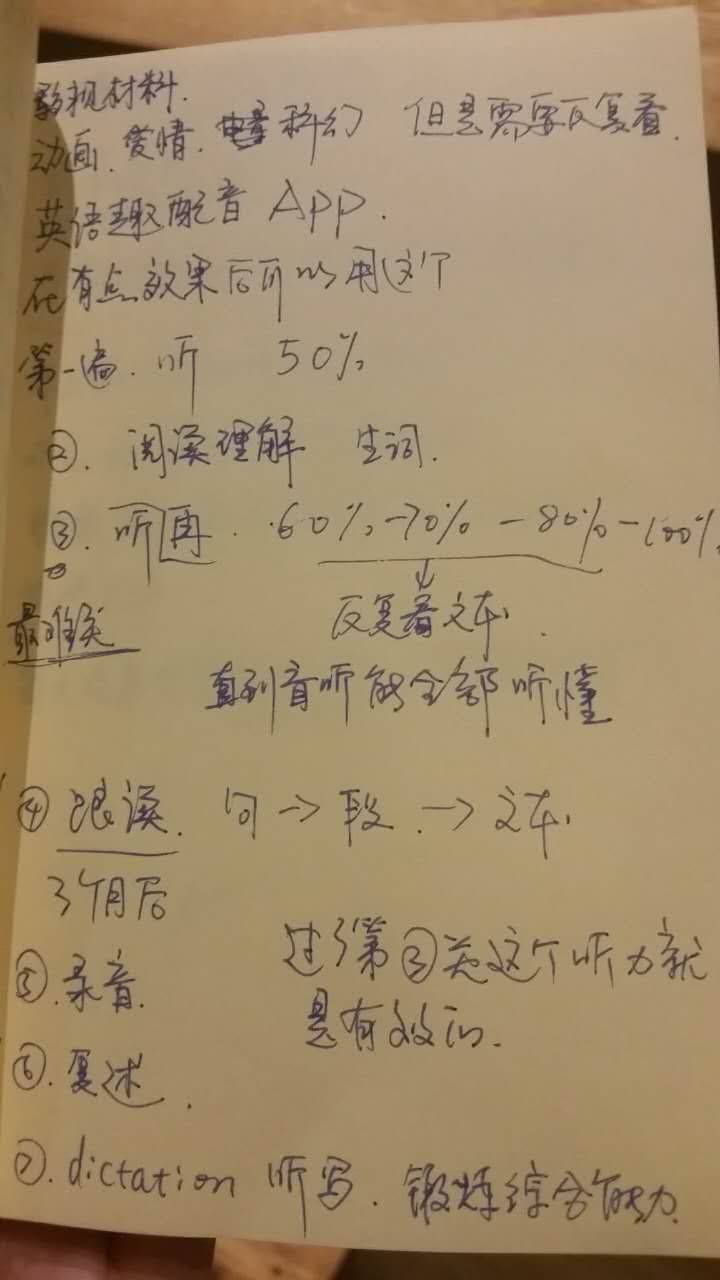 影视材料.
动画、爱情、科幻 但是需要反复看.
英语趣配音 APP.
在有点效果后可以用这个
第一遍. 听 50%
②. 阅读理解 生词.
③. 听再. 60%-70%-80%-100%
↓
最难关 反复看文本.
直到音听能全部听懂
④ 跟读. 句→段.→文本.
3个月后
过了第③关这个听力就
⑤.录音.
是有效的.
⑥.复述.
⑦.dictation 听写. 锻炼综合能力.